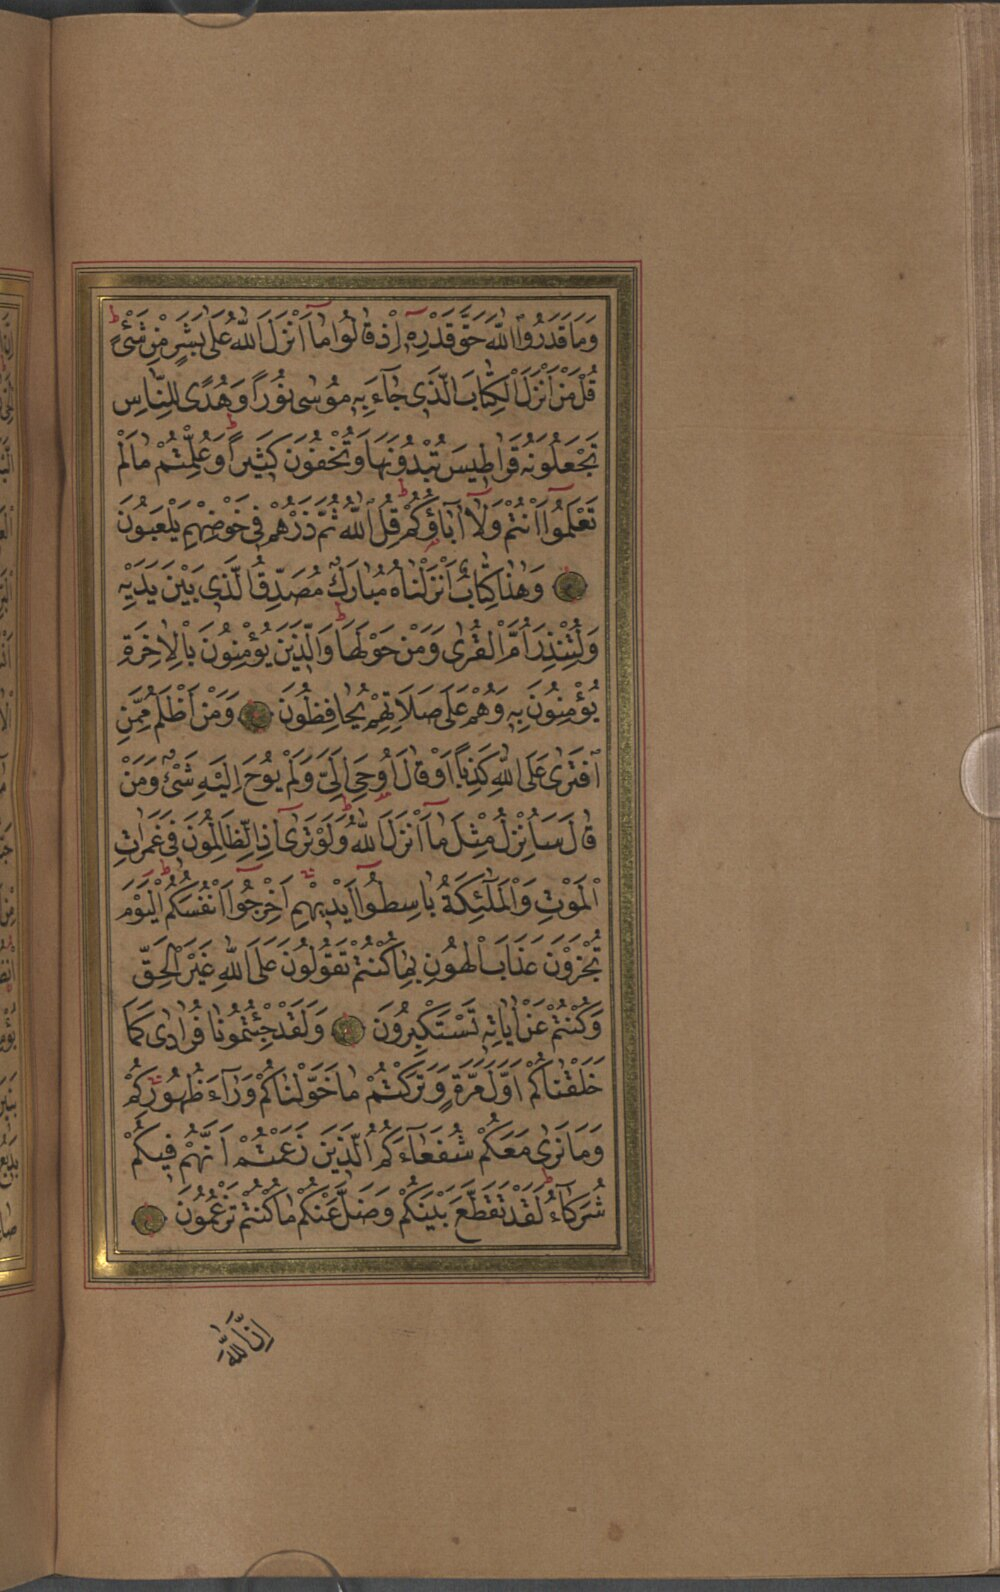 وَمَا قَدَرُوا اللّٰهَ حَقَّ قَدْرِهٖٓ اِذْ قَالُوا مَٓا اَنْزَلَ اللّٰهُ عَلٰى بَشَرٍ مِنْ شَيْءٍ
قُلْ مَنْ اَنْزَلَ الْكِتَابَ الَّذٖى جَٓاءَ بِهٖ مُوسٰى نُورًا وَهُدًى لِلنَّاسِ
تَجْعَلُونَهُ قَرَاطٖيسَ تُبْدُونَهَا وَتُخْفُونَ كَثٖيرًا وَعُلِّمْتُمْ مَالَمْ
تَعْلَمُٓوا اَنْتُمْ وَلَٓا اٰبَاؤُكُمْ قُلِ اللّٰهُ ثُمَّ ذَرْهُمْ فٖى خَوْضِهِمْ يَلْعَبُونَ
وَهٰذَا كِتَابٌ اَنْزَلْنَاهُ مُبَارَكٌ مُصَدِّقُ الَّذٖى بَيْنَ يَدَيْهِ
وَلِتُنْذِرَ اُمَّ الْقُرٰى وَمَنْ حَوْلَهَا وَالَّذٖينَ يُؤْمِنُونَ بِالْاٰخِرَةِ
يُؤْمِنُونَ بِهٖ وَهُمْ عَلٰى صَلَاتِهِمْ يُحَافِظُونَ وَمَنْ اَظْلَمُ مِمَّنِ
افْتَرٰى عَلَى اللّٰهِ كَذِبًا اَوْ قَالَ اُوحِىَ اِلَىَّ وَلَمْ يُوحَ اِلَيْهِ شَىْءٌ وَمَنْ
قَالَ سَاُنْزِلُ مِثْلَ مَٓا اَنْزَلَ اللّٰهُ وَلَوْ تَرٰٓى اِذِ الظَّالِمُونَ فٖى غَمَرَاتِ
الْمَوْتِ وَالْمَلٰٓئِكَةُ بَاسِطُٓوا اَيْدٖيهِمْ اَخْرِجُٓوا اَنْفُسَكُمْ اَلْيَوْمَ
تُجْزَوْنَ عَذَابَ الْهُونِ بِمَا كُنْتُمْ تَقُولُونَ عَلَى اللّٰهِ غَيْرَ الْحَقِّ
وَكُنْتُمْ عَنْ اٰيَاتِهٖ تَسْتَكْبِرُونَ وَلَقَدْ جِئْتُمُونَا فُرَادٰى كَمَا
خَلَقْنَاكُمْ اَوَّلَ مَرَّةٍ وَتَرَكْتُمْ مَا خَوَّلْنَاكُمْ وَرَٓاءَ ظُهُورِكُمْ
وَمَا نَرٰى مَعَكُمْ شُفَعَٓاءَكُمُ الَّذٖينَ زَعَمْتُمْ اَنَّهُمْ فٖيكُمْ
شُرَكٰٓاءُ لَقَدْ تَقَطَّعَ بَيْنَكُمْ وَضَلَّ عَنْكُمْ مَا كُنْتُمْ تَزْعُمُونَ
اِنَّ اللّٰهَ